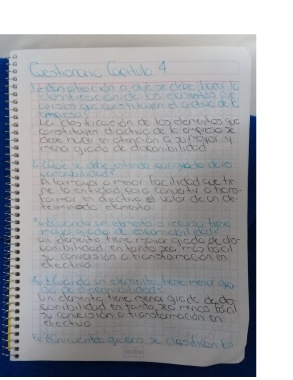 Cuestionario Capitulo 4
1.- En atención a que se debe hacer la
clasificación de los elementos
que constituyen el activo de la
empresa?
La clasificación de los elementos que
constituyen el activo de la empresa se
debe hacer en atención a su mayor y
menor grado de disponibilidad.
2.- Que se debe entender por grado de
disponibilidad?
Al mayor o menor facilidad que se
tiene para convertir o trans-
formar en efectivo el valor de un de-
terminado elemento.
3.- Cuando un elemento
mayor grado de disponibilidad?
Un elemento tiene mayor grado de dis-
ponibilidad en tanto sea mas facil
su conversión o transformación en
efectivo.
4.- Cuando un elemento tiene menor gra-
do de disponibilidad?
Un elemento tiene menor grado de dis-
ponibilidad en tanto sea menos facil
su conversión o transformación en
efectivo
5.- En cuantos grupos se clasifican los